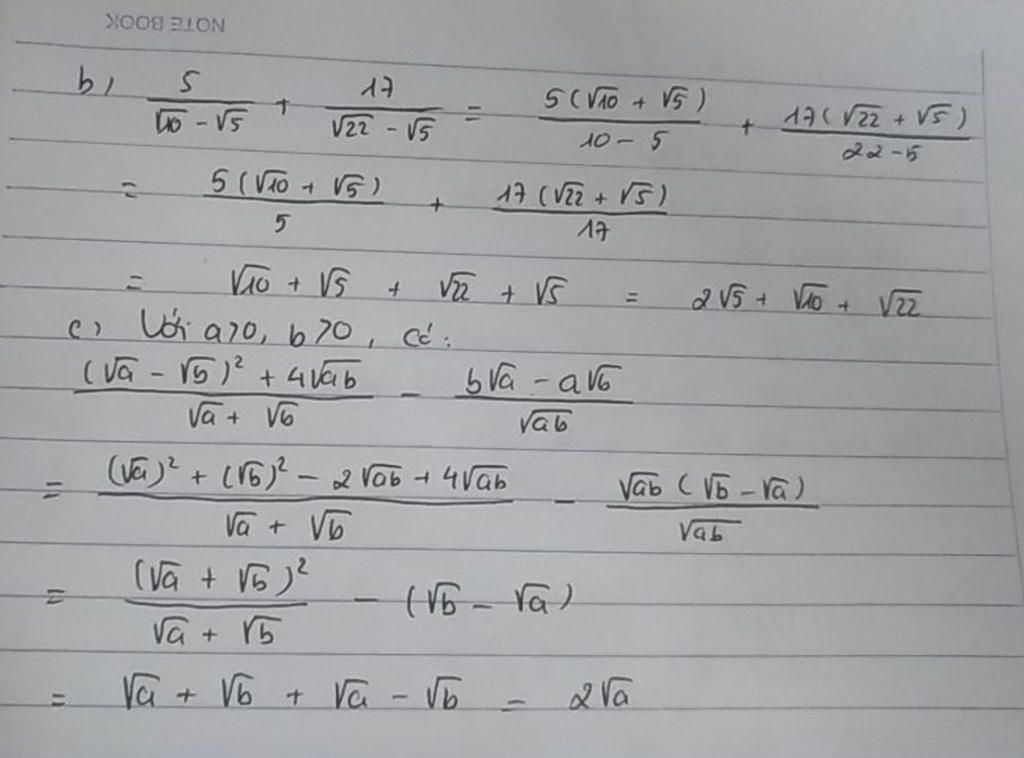 NOTE BOOK
b) 5/(√10 - √5) + 17/(√22 - √5) = 5(√10 + √5)/(10 - 5) + 17(√22 + √5)/(22 - 5)
= 5(√10 + √5)/5 + 17(√22 + √5)/17
= √10 + √5 + √22 + √5 = 2√5 + √10 + √22
c) Với a>0, b>0, có:
((√a - √b)² + 4√ab)/(√a + √b) - (b√a - a√b)/√ab
= ((√a)² + (√b)² - 2√ab + 4√ab)/(√a + √b) - √ab(√b - √a)/√ab
= (√a + √b)²/(√a + √b) - (√b - √a)
= √a + √b + √a - √b = 2√a